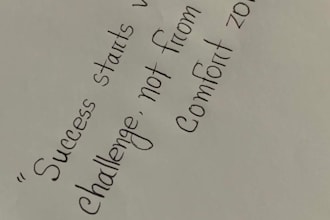 "Success starts
challenge, not from
Comfort